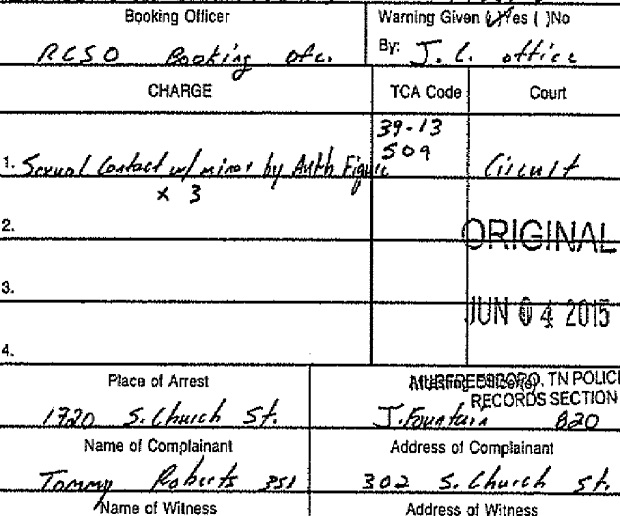 Booking Officer Warning Given (X)Yes ( )No
RCSO Booking Ofc. By: J. C. office
CHARGE TCA Code Court
39-13
1. Sexual Contact w/ minor by Auth Figure 509 Circuit
x 3
2.
ORIGINAL
3.
JUN 04 2015
4.
Place of Arrest MURFREESBORO, TN POLICE
RECORDS SECTION
1720 S. Church St. J. Fountain 820
Name of Complainant Address of Complainant
Tommy Roberts 351 302 S. Church St.
Name of Witness Address of Witness